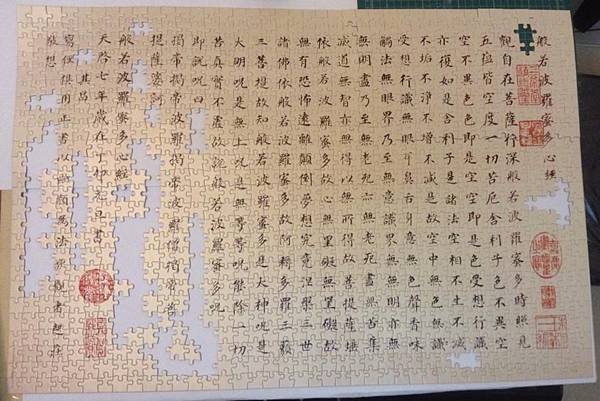 般若波羅蜜多心經
觀自在菩薩行深般若波羅蜜多時照見
五蘊皆空度一切苦厄舍利子色不異空
空不異色色即是空空即是色受想行識
亦復如是舍利子是諸法空相不生不滅
不垢不淨不增不減是故空中無色無
受想行識無眼耳鼻舌身意無色聲香味
觸法無眼界乃至無意識界無無明亦無
無明盡乃至無老死亦無老死盡無苦集
滅道無智亦無得以無所得故菩提薩埵
依般若波羅蜜多故心無罣礙無罣礙故
無有恐怖遠離顛倒夢想究竟涅槃三世
諸佛依般若波羅蜜多故阿耨多羅三藐
三菩提故知般若波羅蜜多是大神咒是
大明咒是無上咒是無等等咒能除一切
苦真實不虛故說般若波羅蜜多咒
即說咒曰
揭帝揭帝波羅揭帝波羅僧揭帝菩
提薩婆訶
般若波羅蜜多心經
天啓七年歲在丁卯元旦書
其昌
寫經俱用正書以顏為法觀者起莊
敬想